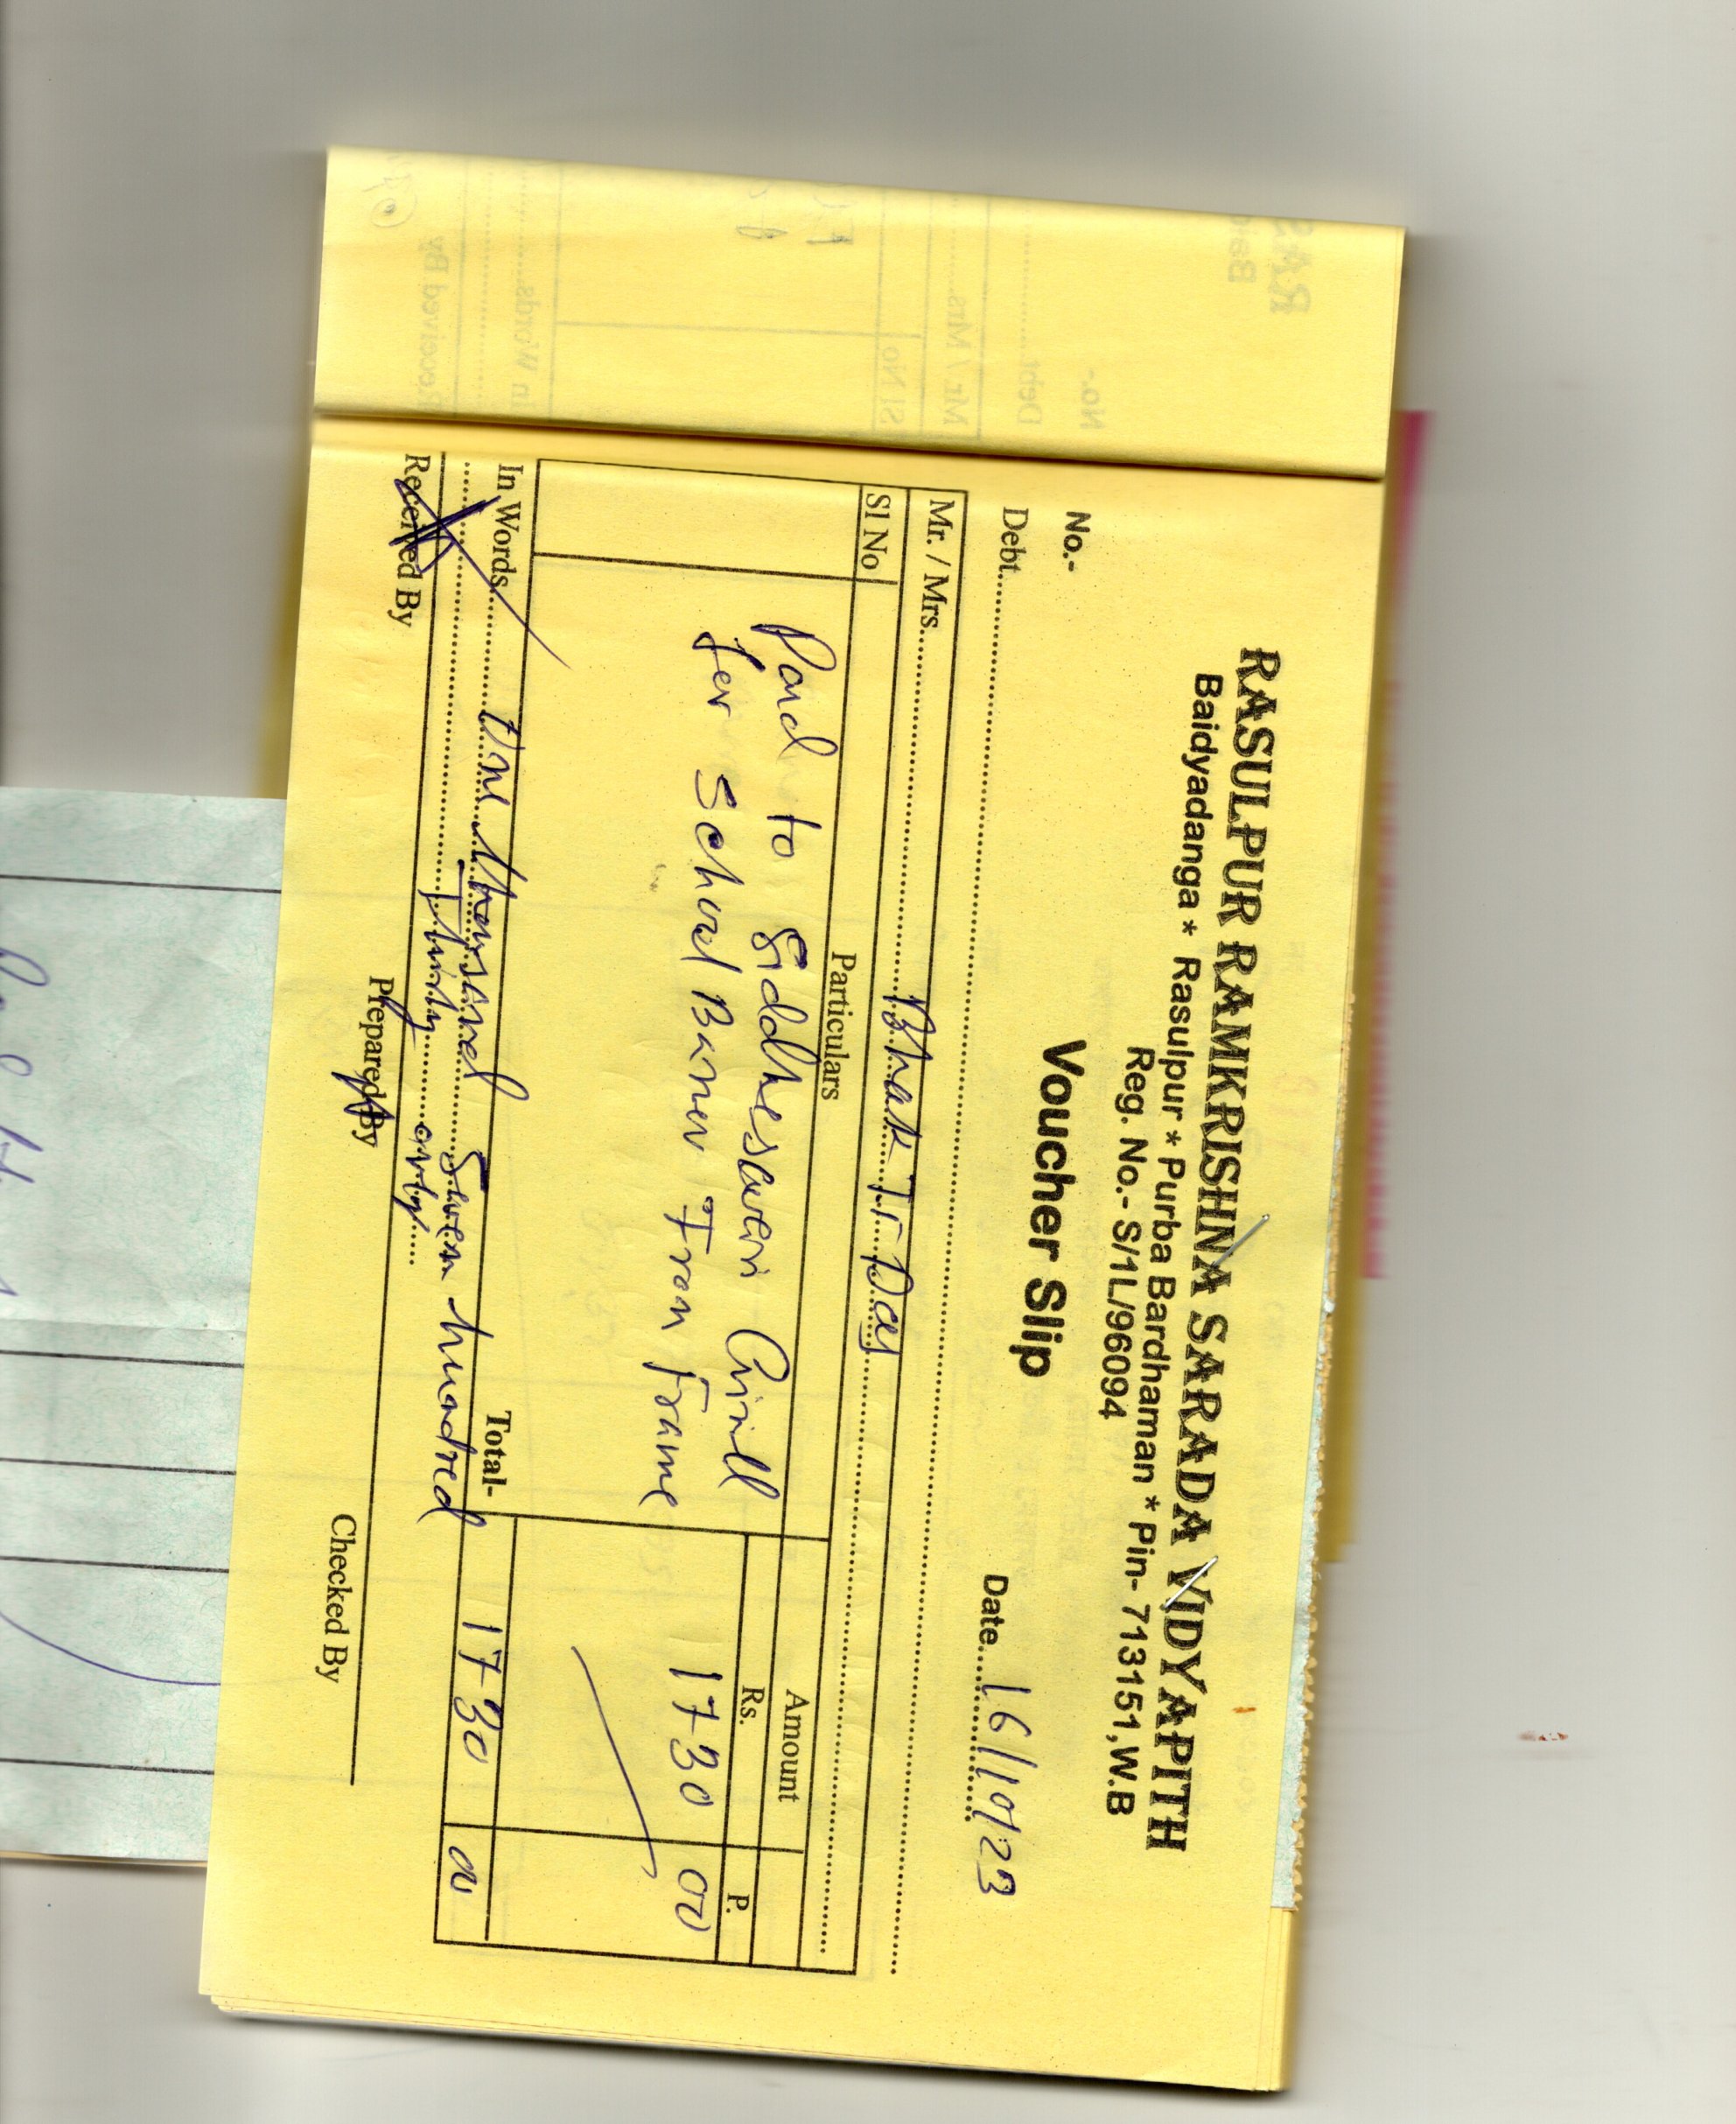 RASULPUR RAMKRISHNA SARADA VIDYAPITH
Baidyadanga * Rasulpur * Purba Bardhaman * Pin- 713151,W.B
Reg. No.- S/1L/96094
Voucher Slip
No.-
Debt. Date 16/10/23
Mr. / Mrs. Das
Sl No Particulars Amount
Rs. P.
Paid to Siddheswari Grill 1730 00
for School Baner Iron Frame
Total- 1730 00
In Words One thousand Seven hundred
Thirty only
Received By Prepared By Checked By